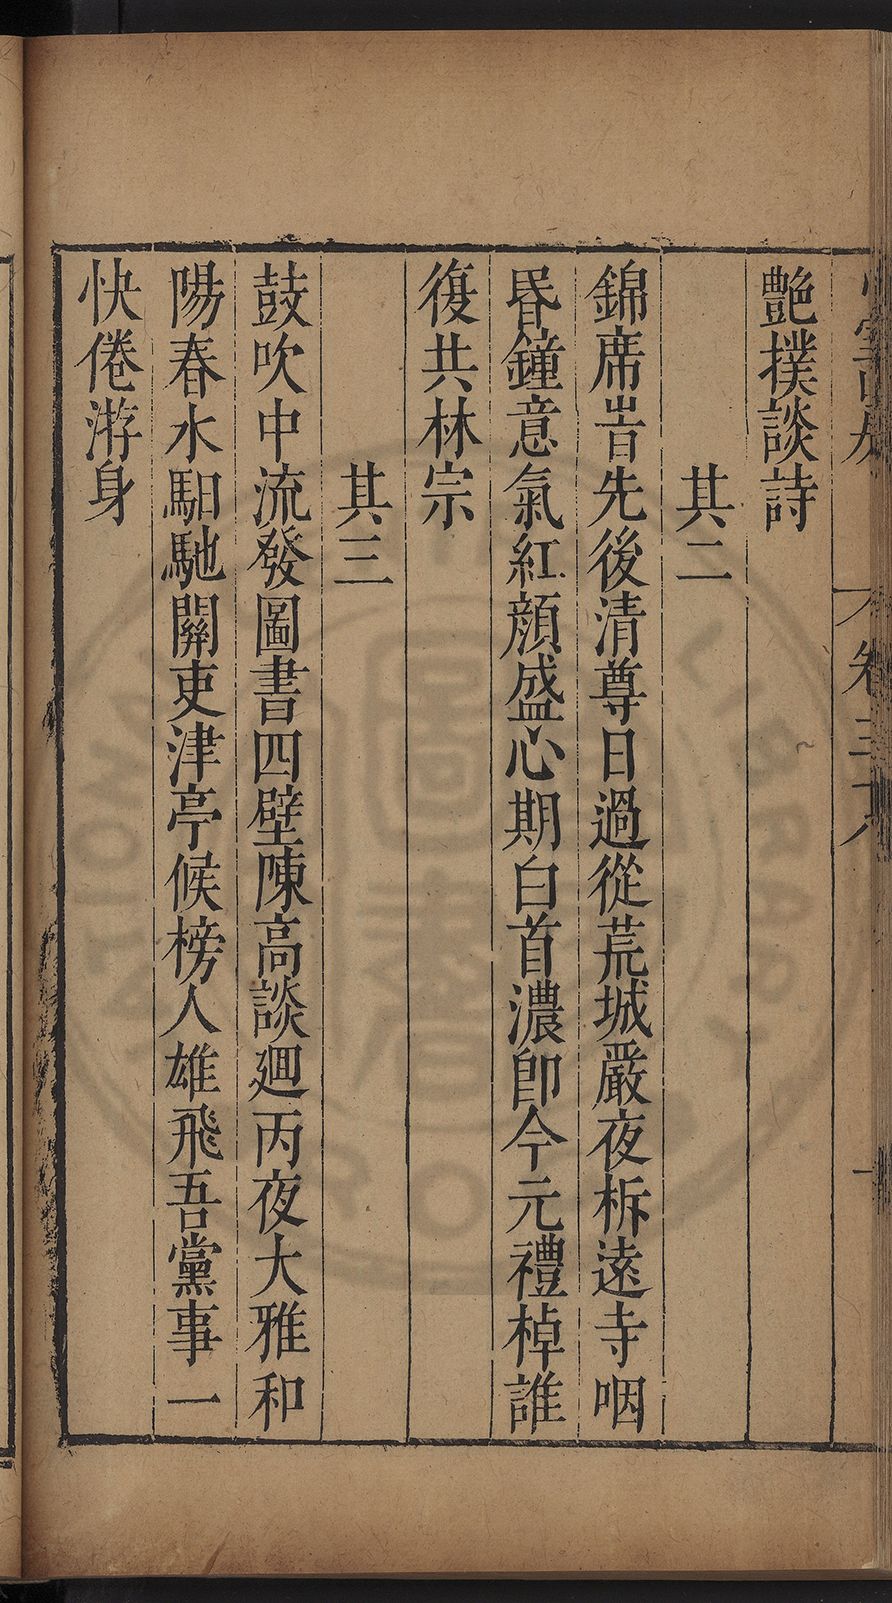 卷三十八
艷撲談詩
其二
錦席峕先後清尊日過從荒城嚴夜柝遠寺咽
昬鐘意氣紅顏盛心期白首濃卽今元禮棹誰
復共林宗
其三
鼓吹中流發圖書四壁陳高談廻丙夜大雅和
陽春水馹馳關吏津亭候榜人雄飛吾黨事一
快倦游身